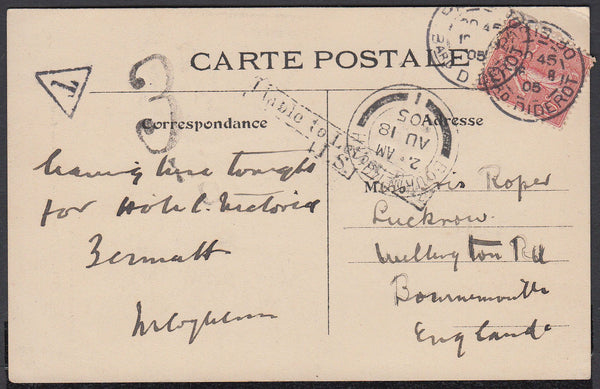 CARTE POSTALE
T
3
Correspondance
Adresse
Liable to
leaving here tonight
for Hotel Victoria
Zermatt
Roper
Lucknow
Wellington Rd
Bournemouth
England
2 AM
AU 18
05
1
45
05
BD DIDEROT